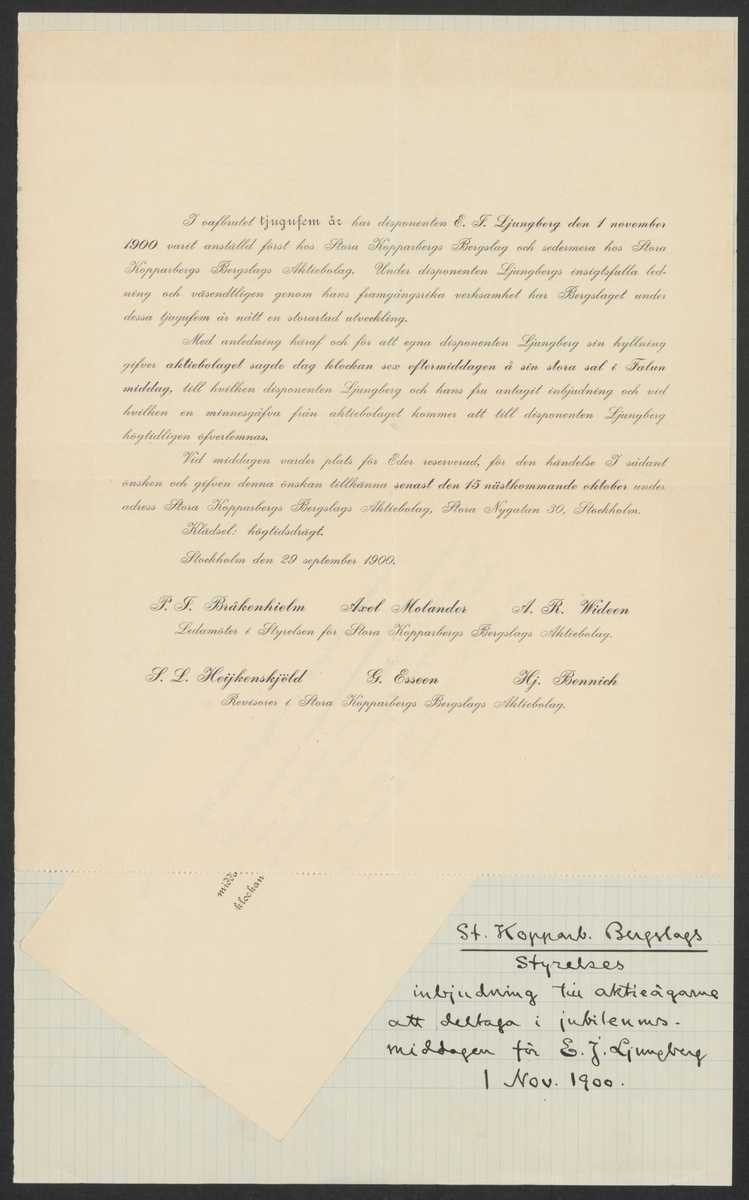 I oafbrutet tjugufem år har disponenten E. J. Ljungberg den 1 november
1900 varit anställd först hos Stora Kopparbergs Bergslag och sedermera hos Stora
Kopparbergs Bergslags Aktiebolag. Under disponenten Ljungbergs insigtsfulla led-
ning och väsendtligen genom hans framgångsrika verksamhet har Bergslaget under
dessa tjugufem år nått en storartad utveckling.
Med anledning häraf och för att egna disponenten Ljungberg sin hyllning
gifver aktiebolaget sagde dag klockan sex eftermiddagen å sin stora sal i Falun
middag, till hvilken disponenten Ljungberg och hans fru antagit inbjudning och vid
hvilken en minnesgåfva från aktiebolaget kommer att till disponenten Ljungberg
högtidligen öfverlemnas.
Vid middagen varder plats för Eder reserverad, för den händelse I sådant
önsken och gifven denna önskan tillkänna senast den 15 nästkommande oktober under
adress Stora Kopparbergs Bergslags Aktiebolag, Stora Nygatan 30, Stockholm.
Klädsel: högtidsdrägt.
Stockholm den 29 september 1900.
P. J. Bråkenhielm Axel Molander A. R. Wideen
Ledamöter i Styrelsen för Stora Kopparbergs Bergslags Aktiebolag.
S. L. Heijkenskjöld G. Esseen Hj. Bennich
Revisorer i Stora Kopparbergs Bergslags Aktiebolag.
midda
klockan
St. Kopparb. Bergslags
Styrelses
inbjudning till aktieägarne
att deltaga i jubileums-
middagen för E. J. Ljungberg
1 Nov. 1900.